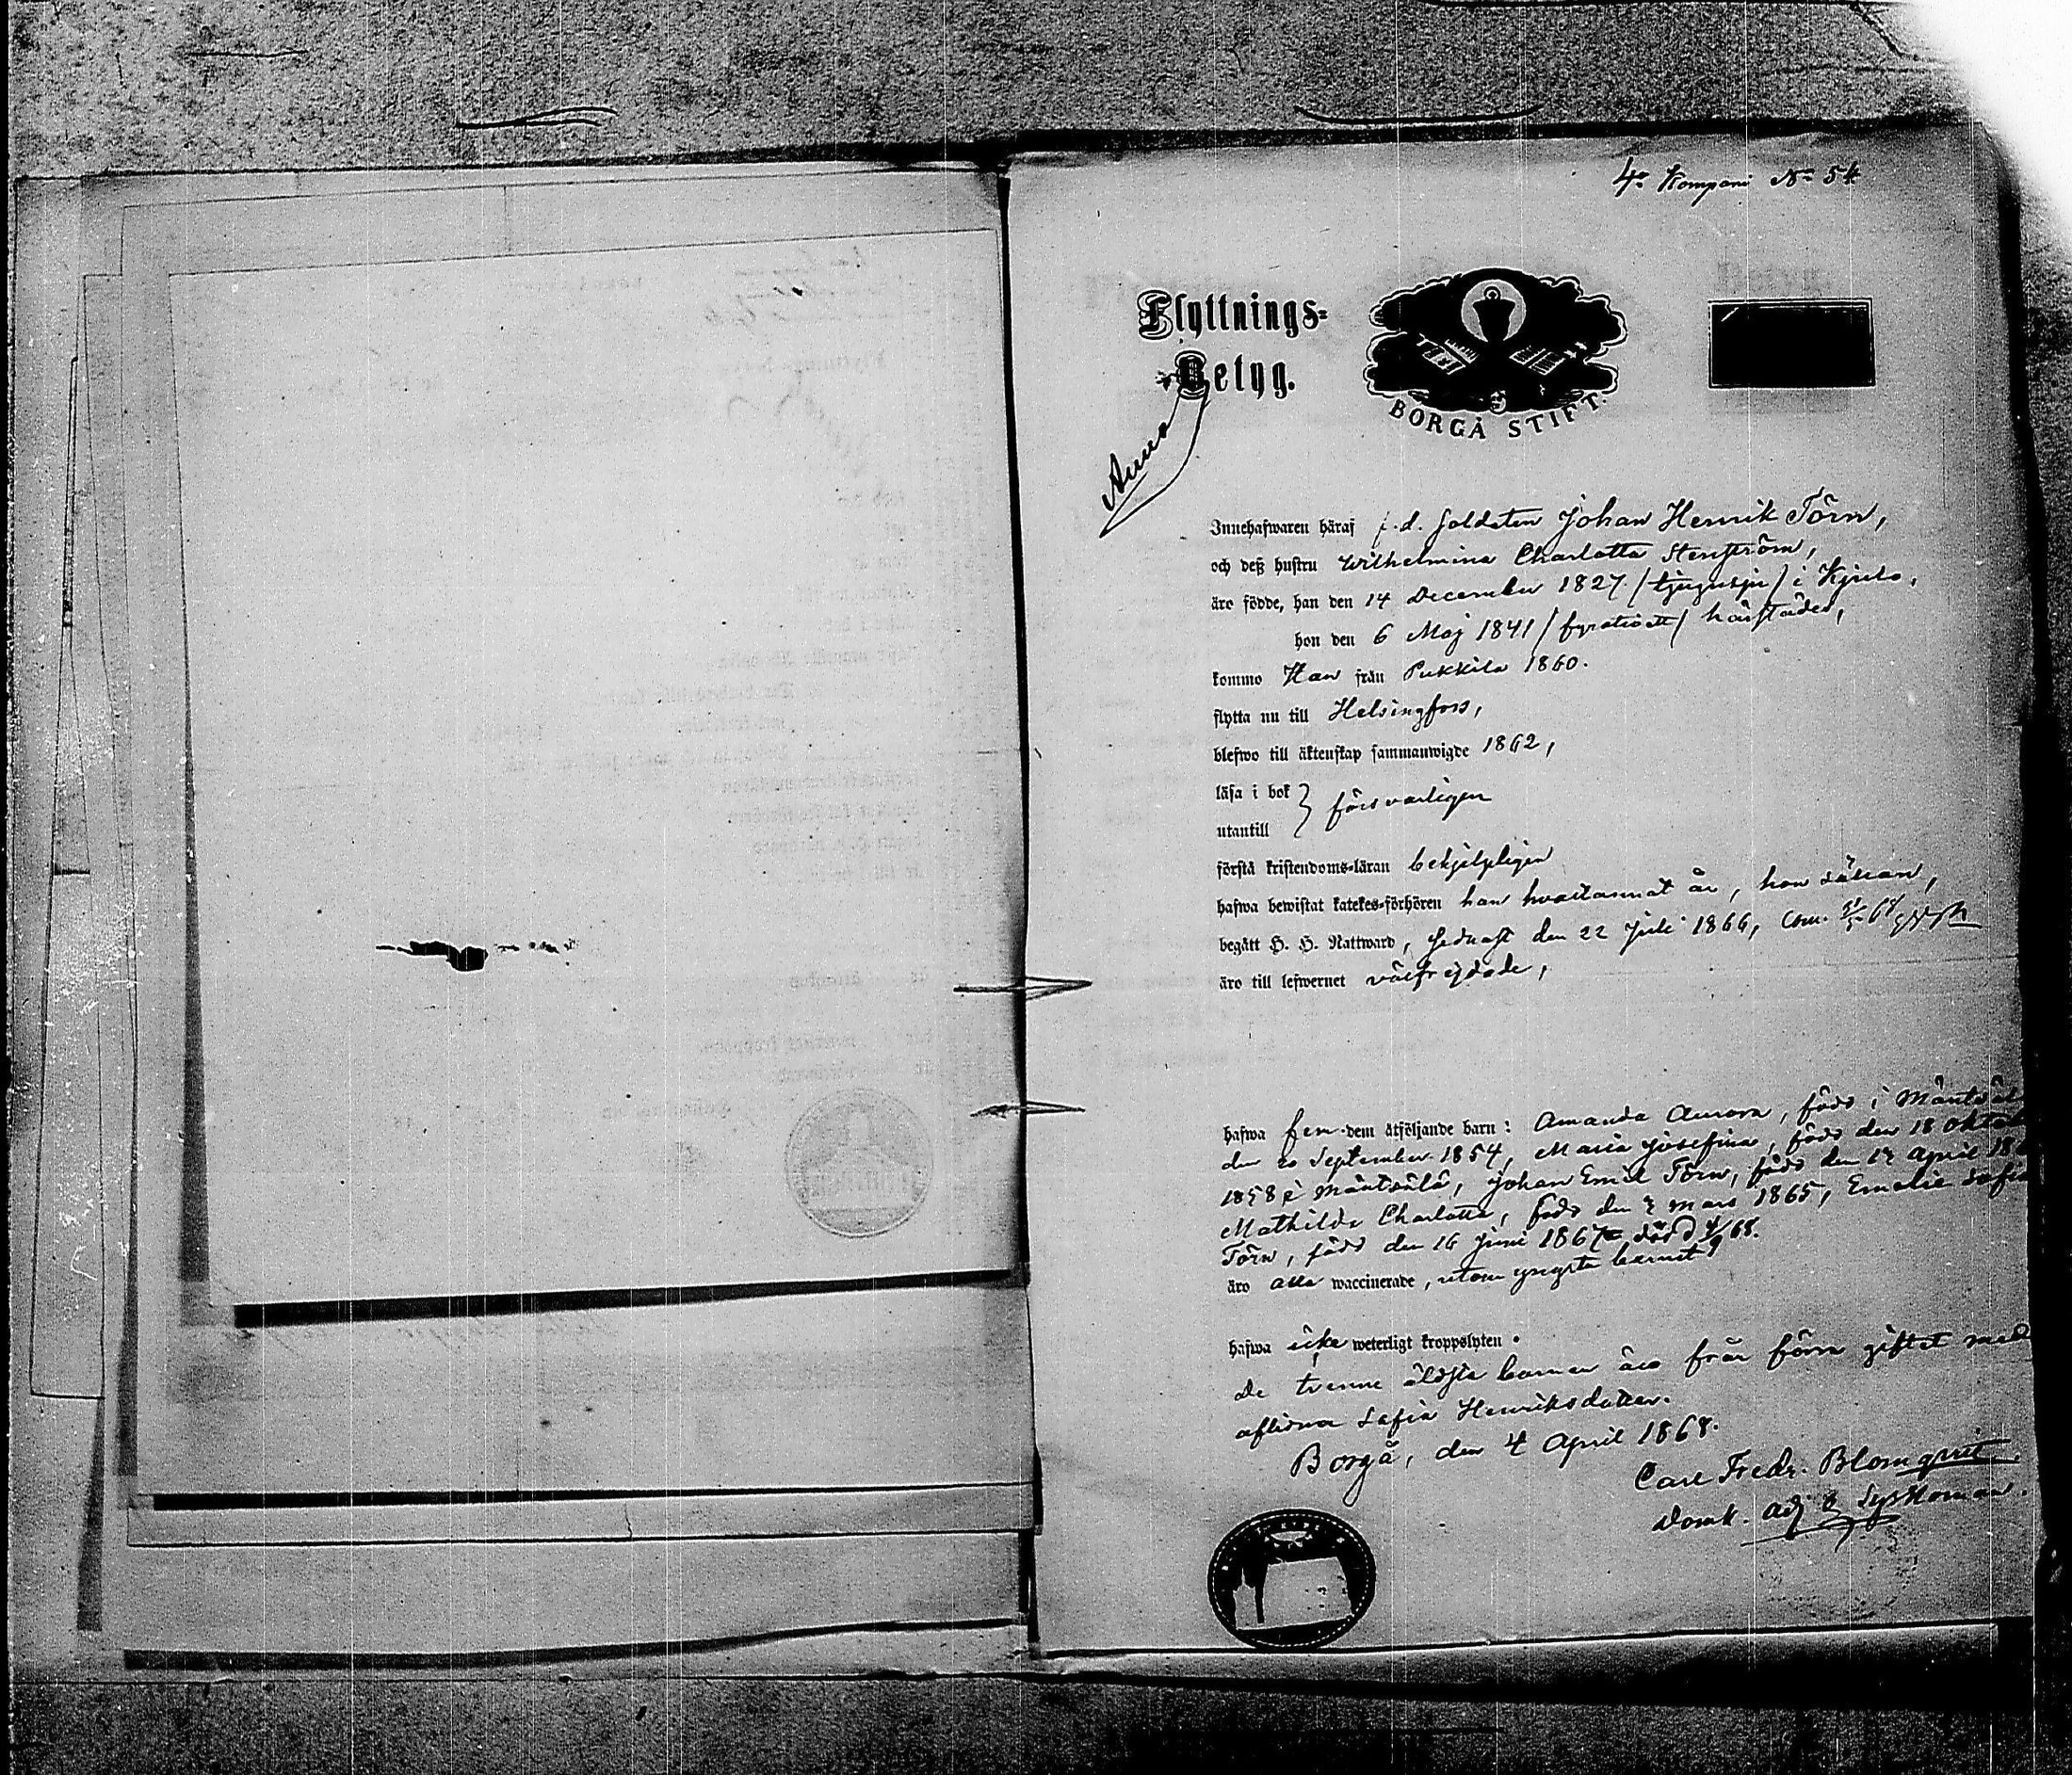 4º Kompani No 54
Flyttnings-
Betyg.
BORGÅ STIFT.
Innehafwaren häraf f.d. Soldaten Johan Henrik Törn,
och deß hustru Wilhelmina Charlotta Stenström,
äro födde, han den 14 December 1827 /tjugusju/ i
hon den 6 Maj 1841 /fyratioett/ härstädes,
kommo Han från Pukkila 1860.
flytta nu till Helsingfors,
blefwo till äktenskap sammanwigde 1862,
läsa i bok
utantill } försvarligen
förstå kristendoms-läran behjelpligen
hafwa bewistat katekes-förhören han hvartannat år, hon sällan,
begått H. H. Nattward, sednast den 22 Juli 1866,
äro till lefwernet välfrejdade,
hafwa fem dem åtföljande barn: Amanda Aurora, född i
den 20 September 1854, Maria Josefina, född den 18
1858 i Mäntsälä, Johan Emil Törn, född den 17 April
Mathilda Charlotta, född den 2 Mars 1865, Emelie Sofia
Törn, född den 16 Juni 1867 död
äro alla waccinerade, utom yngsta barnet
hafwa icke weterligt kroppslyten.
De trenne äldsta barnen äro från förra giftet med
aflidna Sofia Henriksdotter.
Borgå, den 4 April 1868.
Carl Fredr. Blomqvist
Domk. adj